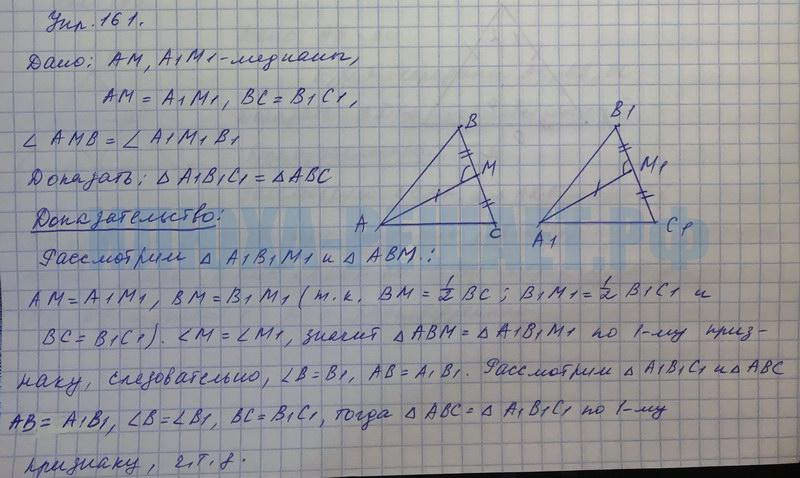 Упр. 161.
Дано: AM, A1M1-медианы,
AM = A1M1, BC = B1C1,
∠ AMB = ∠ A1M1B1
Доказать: △ A1B1C1 = △ABC
Доказательство:
Рассмотрим △ A1B1M1 и △ ABM.:
AM = A1M1, BM = B1M1 (т.к. BM = 1/2 BC; B1M1 = 1/2 B1C1 и
BC = B1C1). ∠M = ∠M1, значит △ABM = △A1B1M1 по 1-му приз-
наку, следовательно, ∠B = B1, AB = A1B1. Рассмотрим △ A1B1C1 и △ ABC
AB = A1B1, ∠B = ∠B1, BC = B1C1, тогда △ ABC = △ A1B1C1 по 1-му
признаку, ч.т.д.
B
M
A
C
B1
M1
A1
C1